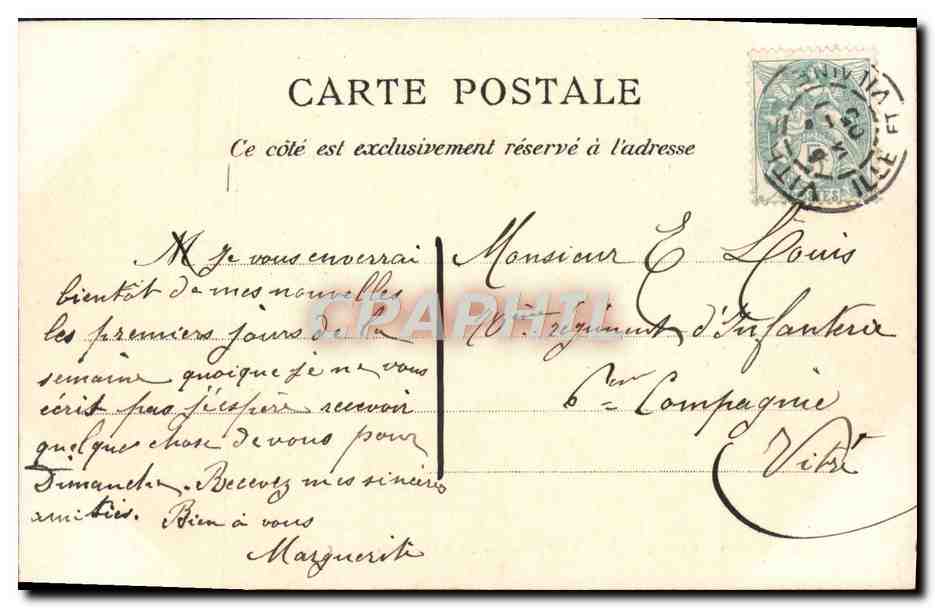 CARTE POSTALE
Ce côté est exclusivement réservé à l'adresse
VITRÉ
ILLE ET VILAINE
05
M Je vous enverrai
bientôt de mes nouvelles
les premiers jours de la
semaine quoique je ne vous
écrit pas j'espère recevoir
quelque chose de vous pour
Dimanche. Recevez mes sincères
amitiés. Bien à vous
Marguerite
Monsieur E Louis
régiment d'Infanterie
6eme Compagnie
Vitré
CPAPHIL